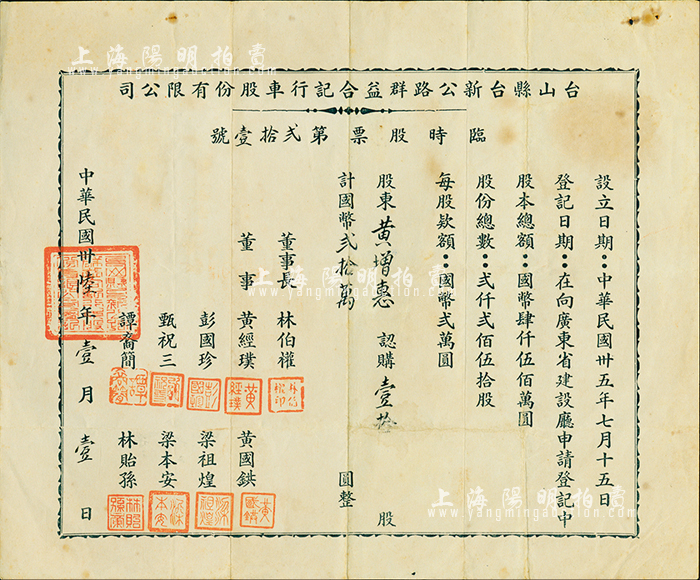 上海陽明拍賣
www.yangmingauction.com
台山縣台新公路群益合記行車股份有限公司
臨時股票第弍拾壹號
設立日期：中華民國卅五年七月十五日
登記日期：在向廣東省建設廳申請登記中
股本總額：國幣肆仟伍佰萬圓
股份總數：弍仟弍佰伍拾股
每股款額：國幣弍萬圓
股東黃增惠 認購壹拾 股
計國幣弍拾萬 圓整
董事長 林伯權
董事 黃經璞 黃國鉷
彭國珍 梁祖煌
甄祝三 梁本安
譚裔簡 林貽孫
中華民國卅陸年壹月壹日
上海陽明拍賣
www.yangmingauction.com
上海陽明拍賣
www.yangmingauction.com